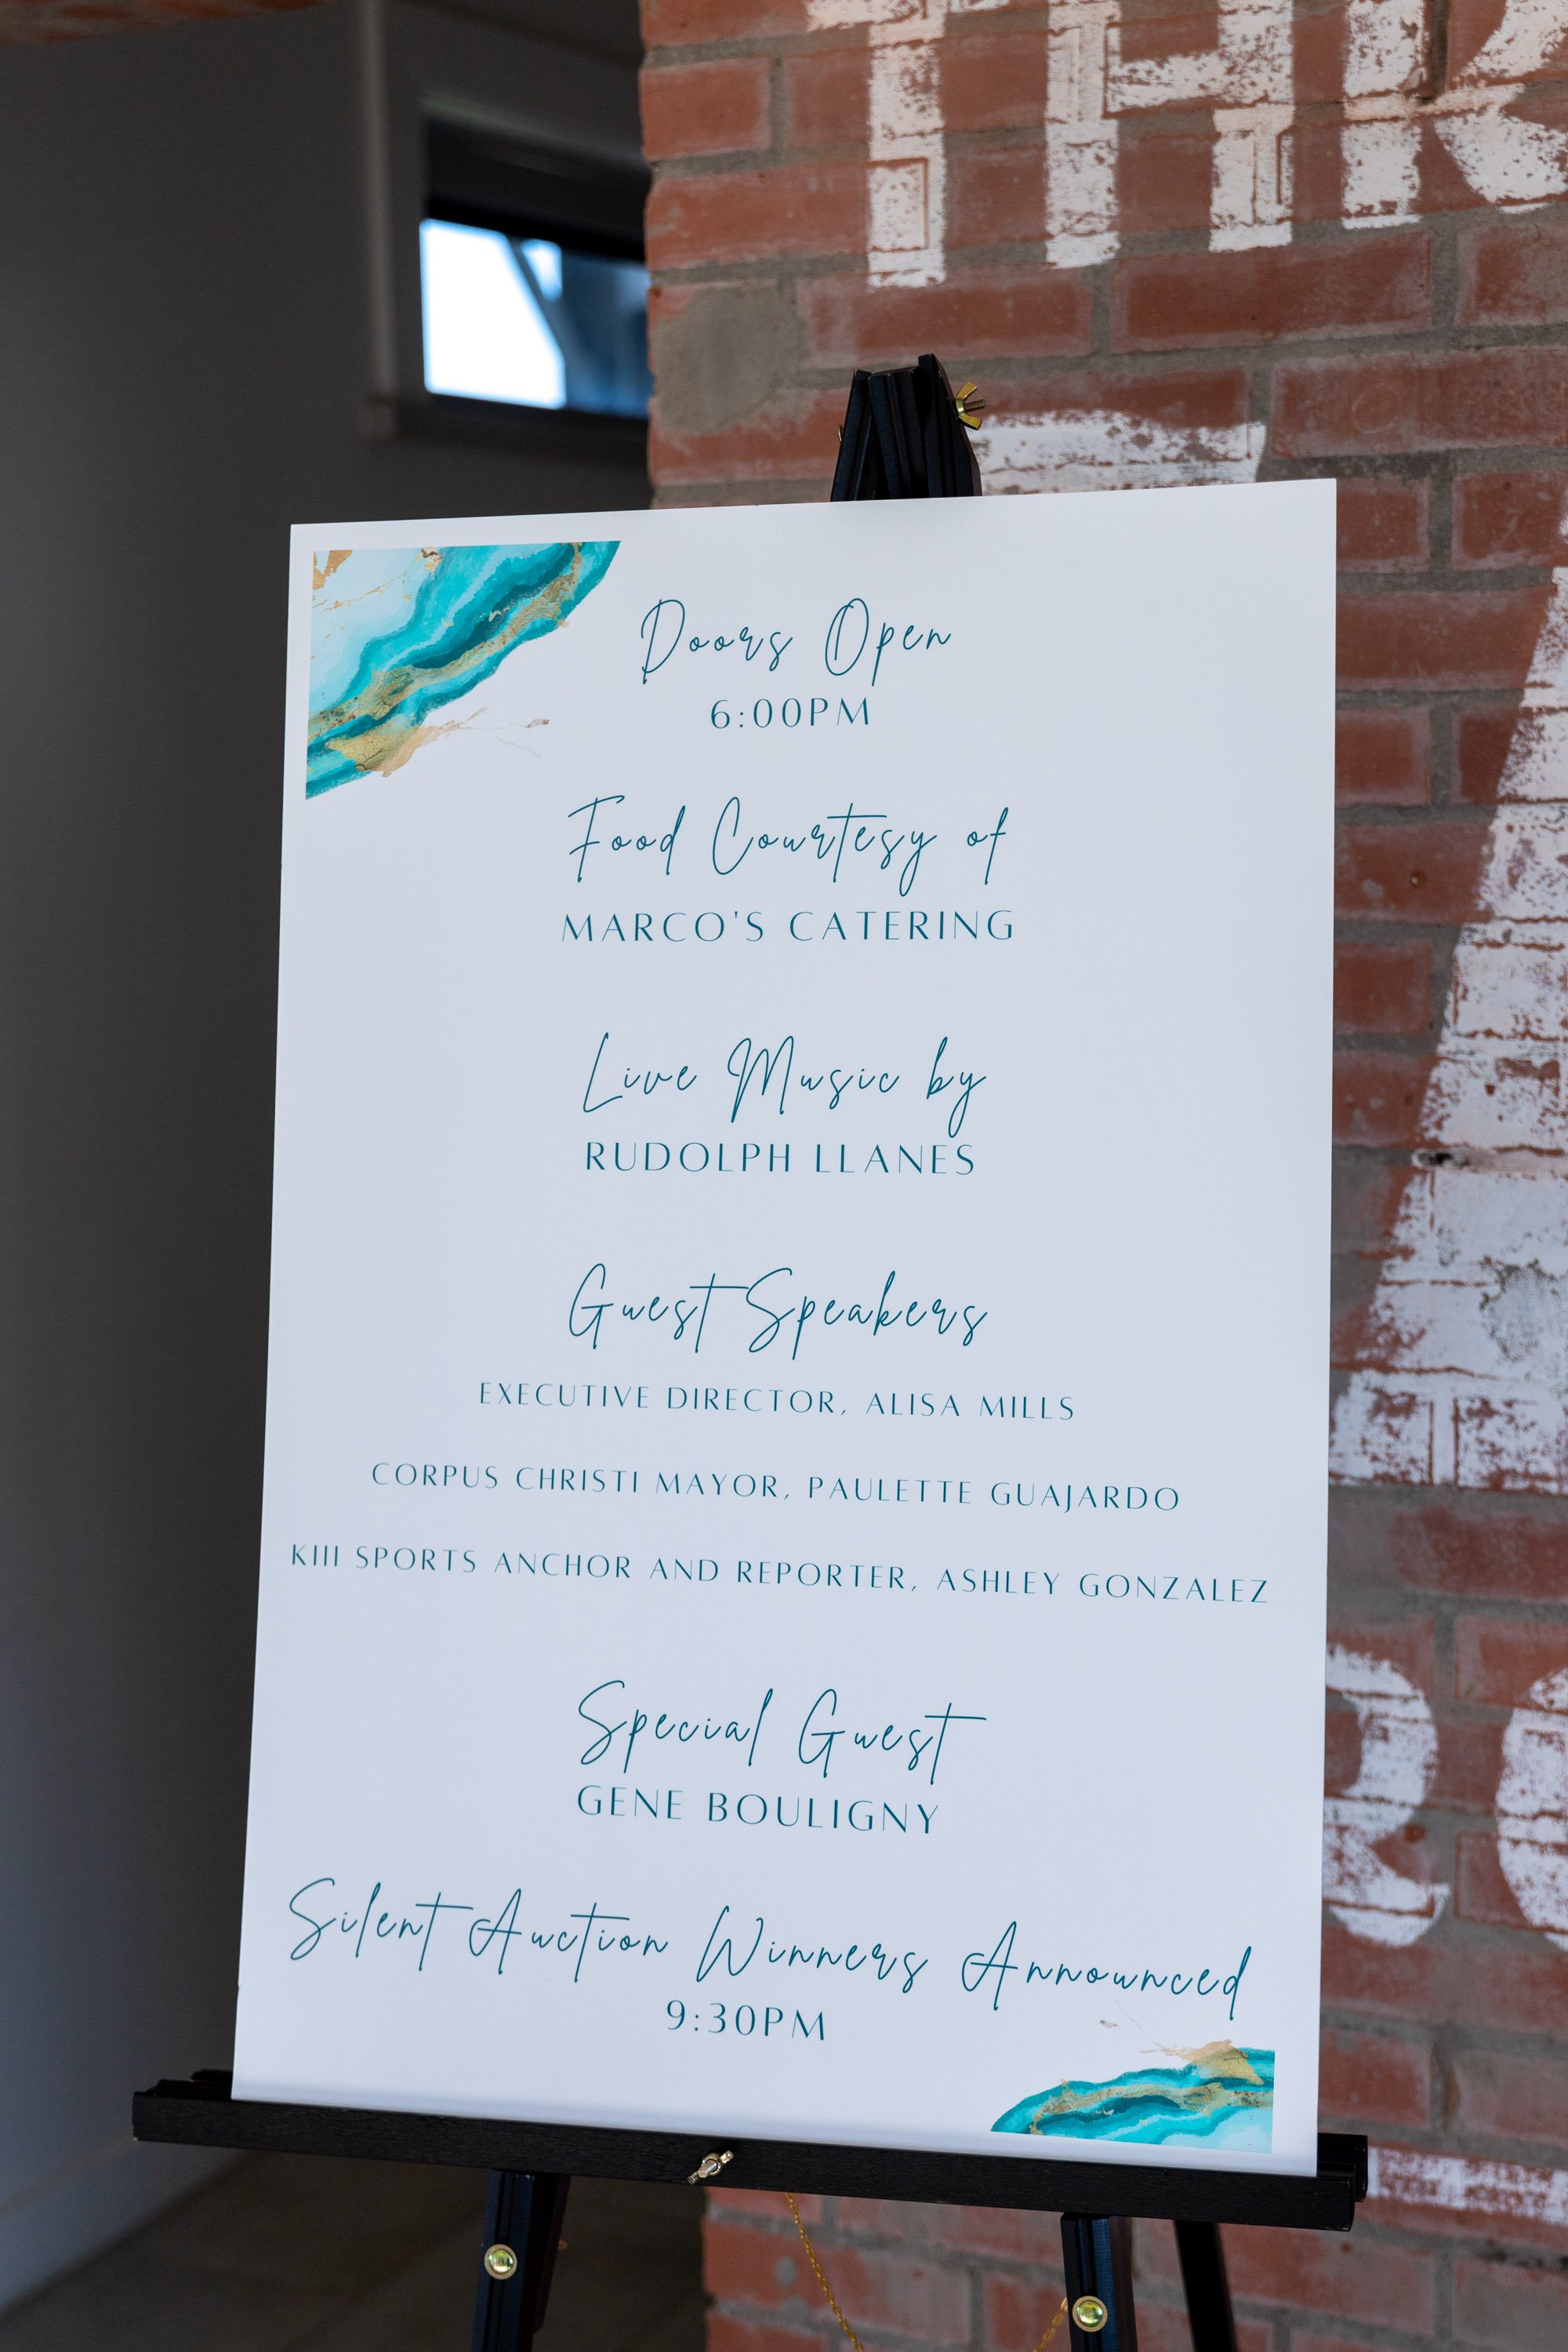 Doors Open
6:00PM
Food Courtesy of
MARCO'S CATERING
Live Music by
RUDOLPH LLANES
Guest Speakers
EXECUTIVE DIRECTOR, ALISA MILLS
CORPUS CHRISTI MAYOR, PAULETTE GUAJARDO
KIII SPORTS ANCHOR AND REPORTER, ASHLEY GONZALEZ
Special Guest
GENE BOULIGNY
Silent Auction Winners Announced
9:30PM